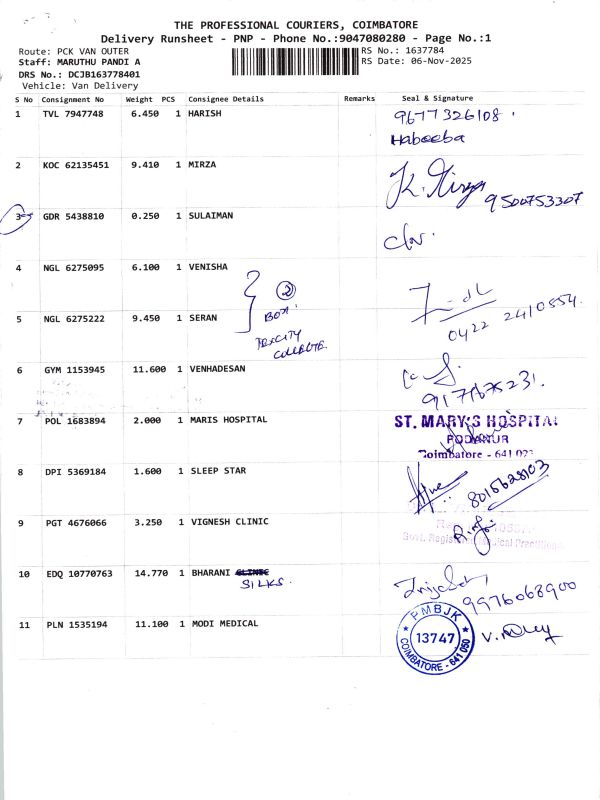 THE PROFESSIONAL COURIERS, COIMBATORE
Delivery Runsheet - PNP - Phone No.:9047080280 - Page No.:1
Route: PCK VAN OUTER
RS No.: 1637784
Staff: MARUTHU PANDI A
RS Date: 06-Nov-2025
DRS No.: DCJB163778401
Vehicle: Van Delivery
S No Consignment No Weight PCS Consignee Details Remarks Seal & Signature
1 TVL 7947748 6.450 1 HARISH 9677326108.
Habeeba
2 KOC 62135451 9.410 1 MIRZA K. Mirza
9500753307
3 GDR 5438810 0.250 1 SULAIMAN
4 NGL 6275095 6.100 1 VENISHA
2
BOX.
5 NGL 6275222 9.450 1 SERAN 0422 2410554.
6 GYM 1153945 11.600 1 VENHADESAN
7 POL 1683894 2.000 1 MARIS HOSPITAL ST. MARY'S HOSPITAL
PODANUR
Coimbatore - 641 023
8 DPI 5369184 1.600 1 SLEEP STAR 8015628103
9 PGT 4676066 3.250 1 VIGNESH CLINIC
Govt. Registered Medical Practitioner
10 EDQ 10770763 14.770 1 BHARANI CLINIC
SILKS.
9976068900
11 PLN 1535194 11.100 1 MODI MEDICAL
PMBJK
13747
COIMBATORE - 641 050